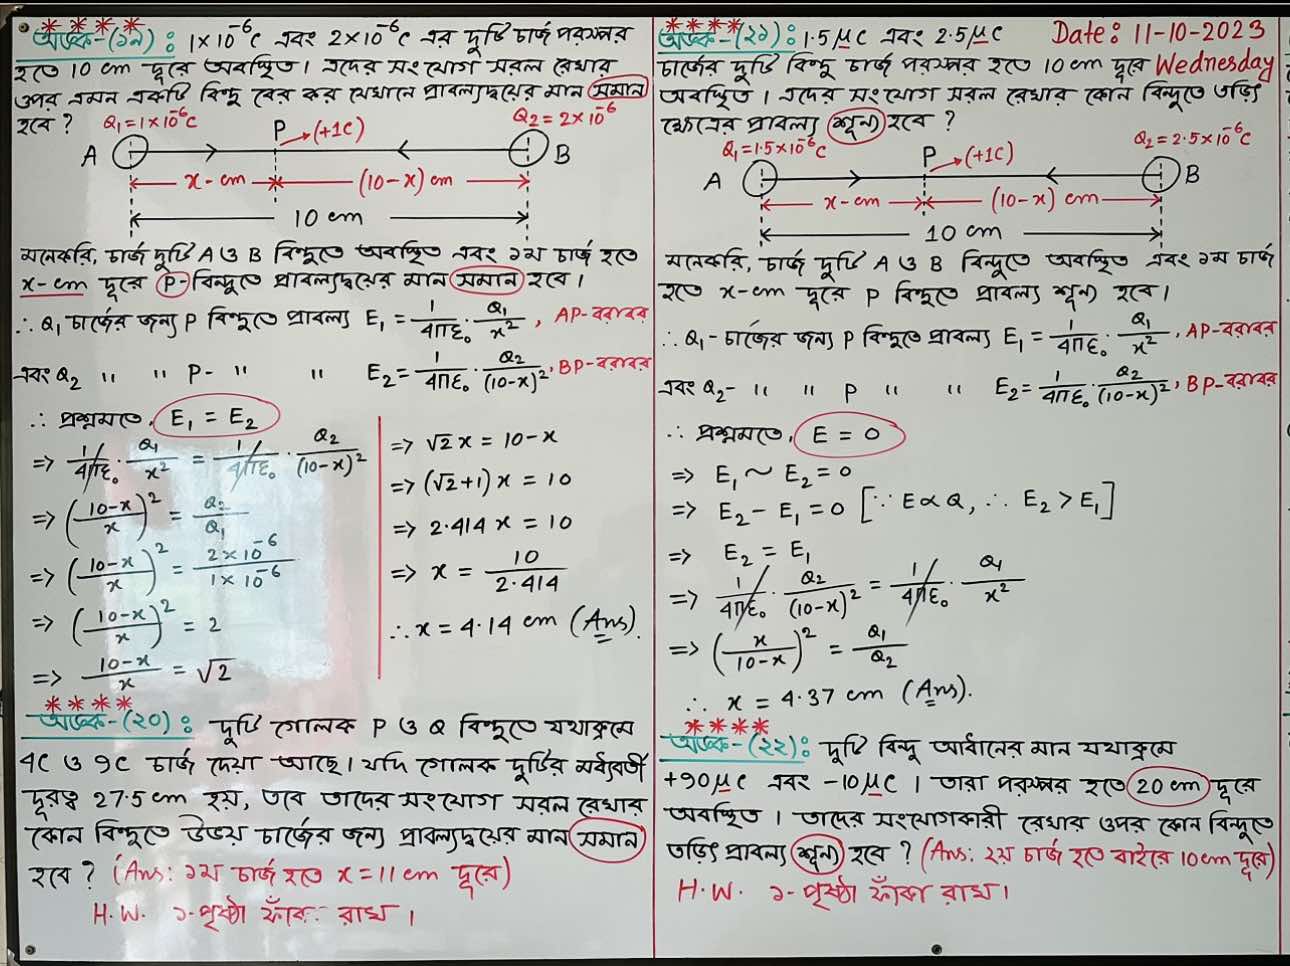 * * * *
অংক-(১৯) : 1×10⁻⁶C এবং 2×10⁻⁶C এর দুটি চার্জ পরস্পর
হতে 10 cm দূরে অবস্থিত। এদের সংযোগ সরল রেখার
উপর এমন একটি বিন্দু বের কর যেখানে প্রাবল্যদ্বয়ের মান সমান
হবে ?
Q₁ = 1×10⁻⁶C
P
(+1C)
Q₂ = 2×10⁻⁶
A
B
x-cm
(10-x) cm
10 cm
মনেকরি, চার্জ দুটি A ও B বিন্দুতে অবস্থিত এবং ১ম চার্জ হতে
x-cm দূরে P-বিন্দুতে প্রাবল্যদ্বয়ের মান সমান হবে।
∴ Q₁ চার্জের জন্য P বিন্দুতে প্রাবল্য E₁ = 1/4πε₀ · Q₁/x² , AP-বরাবর
এবং Q₂ " " P- " " E₂ = 1/4πε₀ · Q₂/(10-x)² , BP-বরাবর
∴ প্রশ্নমতে, E₁ = E₂
=> 1/4πε₀ · Q₁/x² = 1/4πε₀ · Q₂/(10-x)²
=> ((10-x)/x)² = Q₂/Q₁
=> ((10-x)/x)² = 2×10⁻⁶/1×10⁻⁶
=> ((10-x)/x)² = 2
=> (10-x)/x = √2
=> √2 x = 10-x
=> (√2+1) x = 10
=> 2.414 x = 10
=> x = 10/2.414
∴ x = 4.14 cm (Ans).
* * * *
অংক-(২০) : দুটি গোলক P ও Q বিন্দুতে যথাক্রমে
4C ও 9C চার্জ দেয়া আছে। যদি গোলক দুটির মধ্যবর্তী
দূরত্ব 27.5 cm হয়, তবে তাদের সংযোগ সরল রেখার
কোন বিন্দুতে উভয় চার্জের জন্য প্রাবল্যদ্বয়ের মান সমান
হবে ? (Ans: ১ম চার্জ হতে x = 11 cm দূরে)
H.W. ১-পৃষ্ঠা ফাঁকা রাখ।
* * * *
অংক-(২১) : 1.5 μC এবং 2.5 μC Date: 11-10-2023
চার্জের দুটি বিন্দু চার্জ পরস্পর হতে 10 cm দূরে Wednesday
অবস্থিত। এদের সংযোগ সরল রেখার কোন বিন্দুতে তড়িৎ
ক্ষেত্রের প্রাবল্য শূন্য হবে ?
Q₁ = 1.5×10⁻⁶C
P
(+1C)
Q₂ = 2.5×10⁻⁶C
A
B
x-cm
(10-x) cm
10 cm
মনেকরি, চার্জ দুটি A ও B বিন্দুতে অবস্থিত এবং ১ম চার্জ
হতে x-cm দূরে P বিন্দুতে প্রাবল্য শূন্য হবে।
∴ Q₁-চার্জের জন্য P বিন্দুতে প্রাবল্য E₁ = 1/4πε₀ · Q₁/x² , AP-বরাবর
এবং Q₂- " " P " " E₂ = 1/4πε₀ · Q₂/(10-x)² , BP-বরাবর
∴ প্রশ্নমতে, E = 0
=> E₁ ~ E₂ = 0
=> E₂ - E₁ = 0 [∵ E ∝ Q, ∴ E₂ > E₁]
=> E₂ = E₁
=> 1/4πε₀ · Q₂/(10-x)² = 1/4πε₀ · Q₁/x²
=> (x/(10-x))² = Q₁/Q₂
∴ x = 4.37 cm (Ans).
* * * *
অংক-(২২) : দুটি বিন্দু আধানের মান যথাক্রমে
+90 μC এবং -10 μC । তারা পরস্পর হতে 20 cm দূরে
অবস্থিত। তাদের সংযোগকারী রেখার ওপর কোন বিন্দুতে
তড়িৎ প্রাবল্য শূন্য হবে ? (Ans: ২য় চার্জ হতে বাইরে 10 cm দূরে)
H.W. ১-পৃষ্ঠা ফাঁকা রাখ।